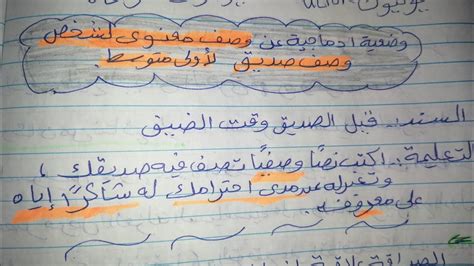 وضعية ادماجية عن وصف معنوي لشخص
وصف صديق لأولى متوسط.
السند: قيل الصديق وقت الضيق
التعليمة: اكتب نصًا وصفيًا تصف فيه صديقك،
وتعبر له عن مدى احترامك له شاكرًا إياه
على معروفه.
الصداقة علاقة